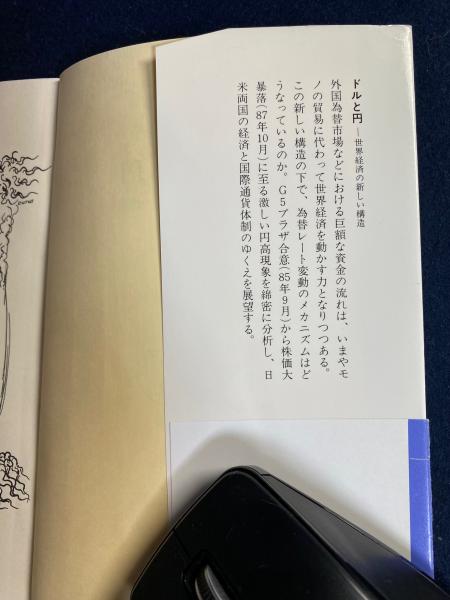 ドルと円―世界経済の新しい構造
外国為替市場などにおける巨額な資金の流れは、いまやモ
ノの貿易に代わって世界経済を動かす力となりつつある。
この新しい構造の下で、為替レート変動のメカニズムはど
うなっているのか。G5プラザ合意(85年9月)から株価大
暴落(87年10月)に至る激しい円高現象を綿密に分析し、日
米両国の経済と国際通貨体制のゆくえを展望する。